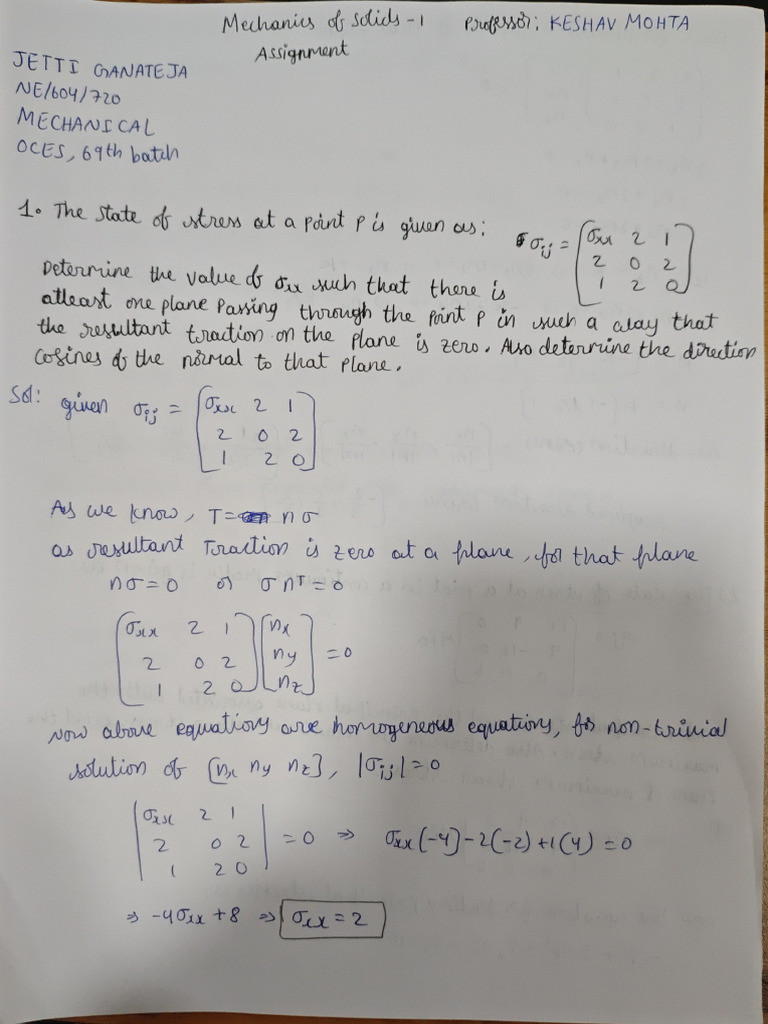 Mechanics of Solids - 1 Professor: KESHAV MOHTA
Assignment
JETTI GANATEJA
NE/604/720
MECHANICAL
OCES, 69th batch
1. The state of stress at a point P is given as; σij = (σxx 2 1
2 0 2
1 2 0)
Determine the value of σxx such that there is
atleast one plane passing through the point P in such a way that
the resultant traction on the plane is zero. Also determine the direction
cosines of the normal to that plane.
Sol: given σij = (σxx 2 1
2 0 2
1 2 0)
As we know, T = nσ
as resultant Traction is zero at a plane, for that plane
nσ = 0 or σ nᵀ = 0
(σxx 2 1
2 0 2
1 2 0) [nx
ny
nz] = 0
Now above equations are homogeneous equations, for non-trivial
solution of [nx ny nz], |σij| = 0
|σxx 2 1
2 0 2
1 2 0| = 0 ⇒ σxx(-4) - 2(-2) + 1(4) = 0
⇒ -4σxx + 8 ⇒ σxx = 2